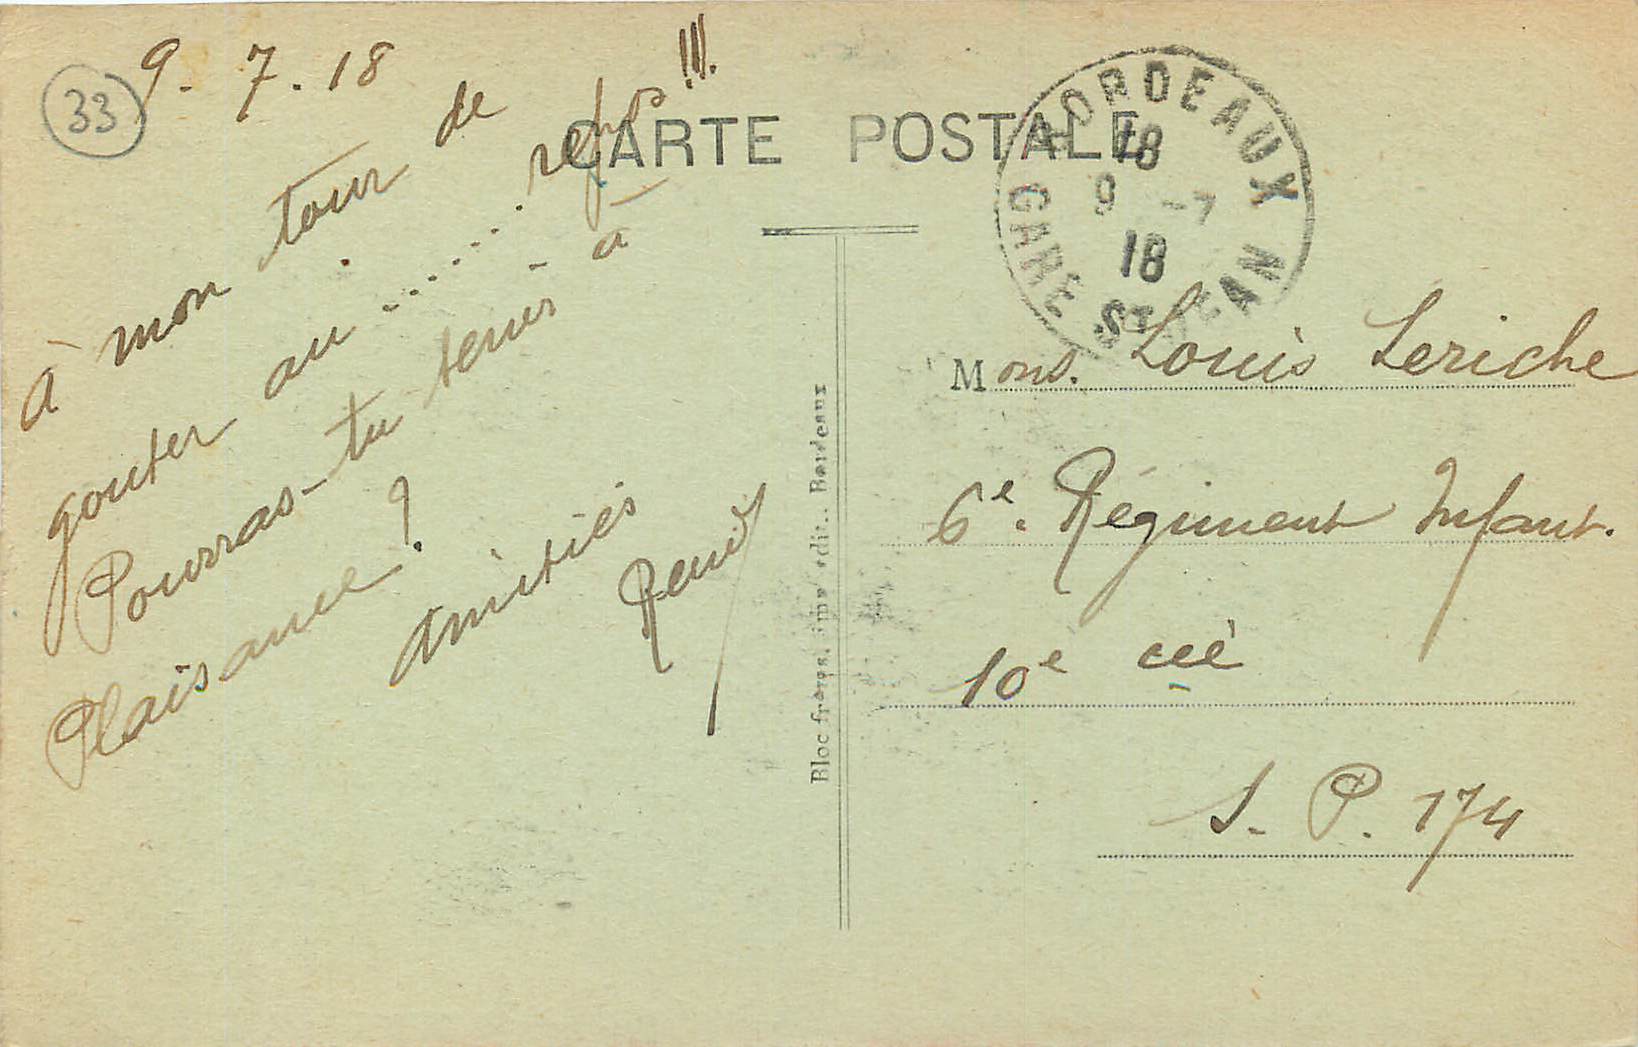 33
9. 7. 18
à mon tour de
gouter au ........ repos !!!
Pourras-tu venir à
Plaisance ?
Amitiés
René
CARTE POSTALE
BORDEAUX
18
9 -7
18
GARE ST JEAN
Mons. Louis Leriche
6e. Régiment Infant.
10e cie
S. P. 174
Bloc frères, imp. édit., Bordeaux